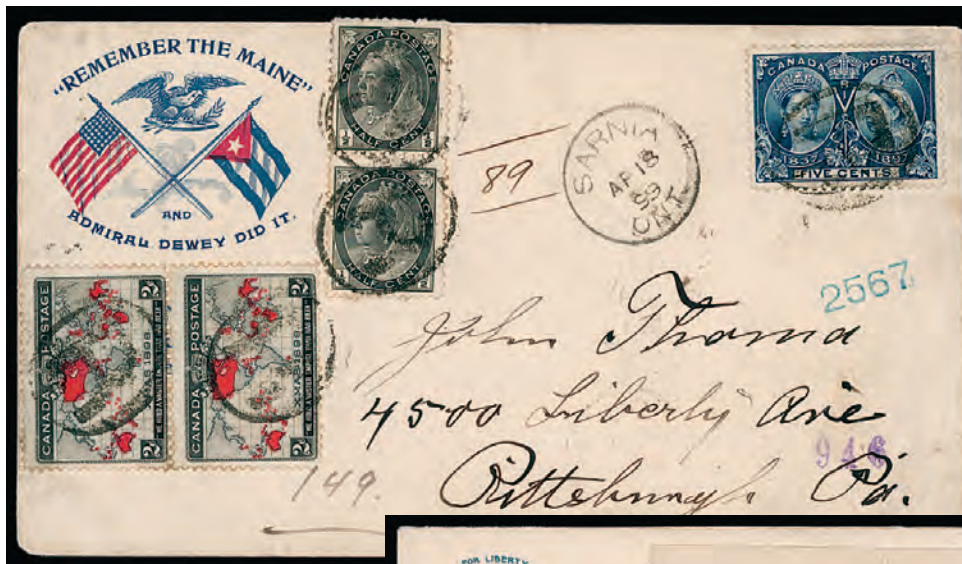 "REMEMBER THE MAINE"
AND
ADMIRAL DEWEY DID IT.
CANADA POSTAGE
½ HALF CENT ½
CANADA POSTAGE
½ HALF CENT ½
89
SARNIA
AP 18
99
ONT
CANADA POSTAGE
1837 1897
FIVE CENTS
2567
CANADA POSTAGE
2
XMAS 1898
CANADA POSTAGE
2
XMAS 1898
John Thoma
4500 Liberty Ave
946
Pittsburgh Pa.
149.
FOR LIBERTY